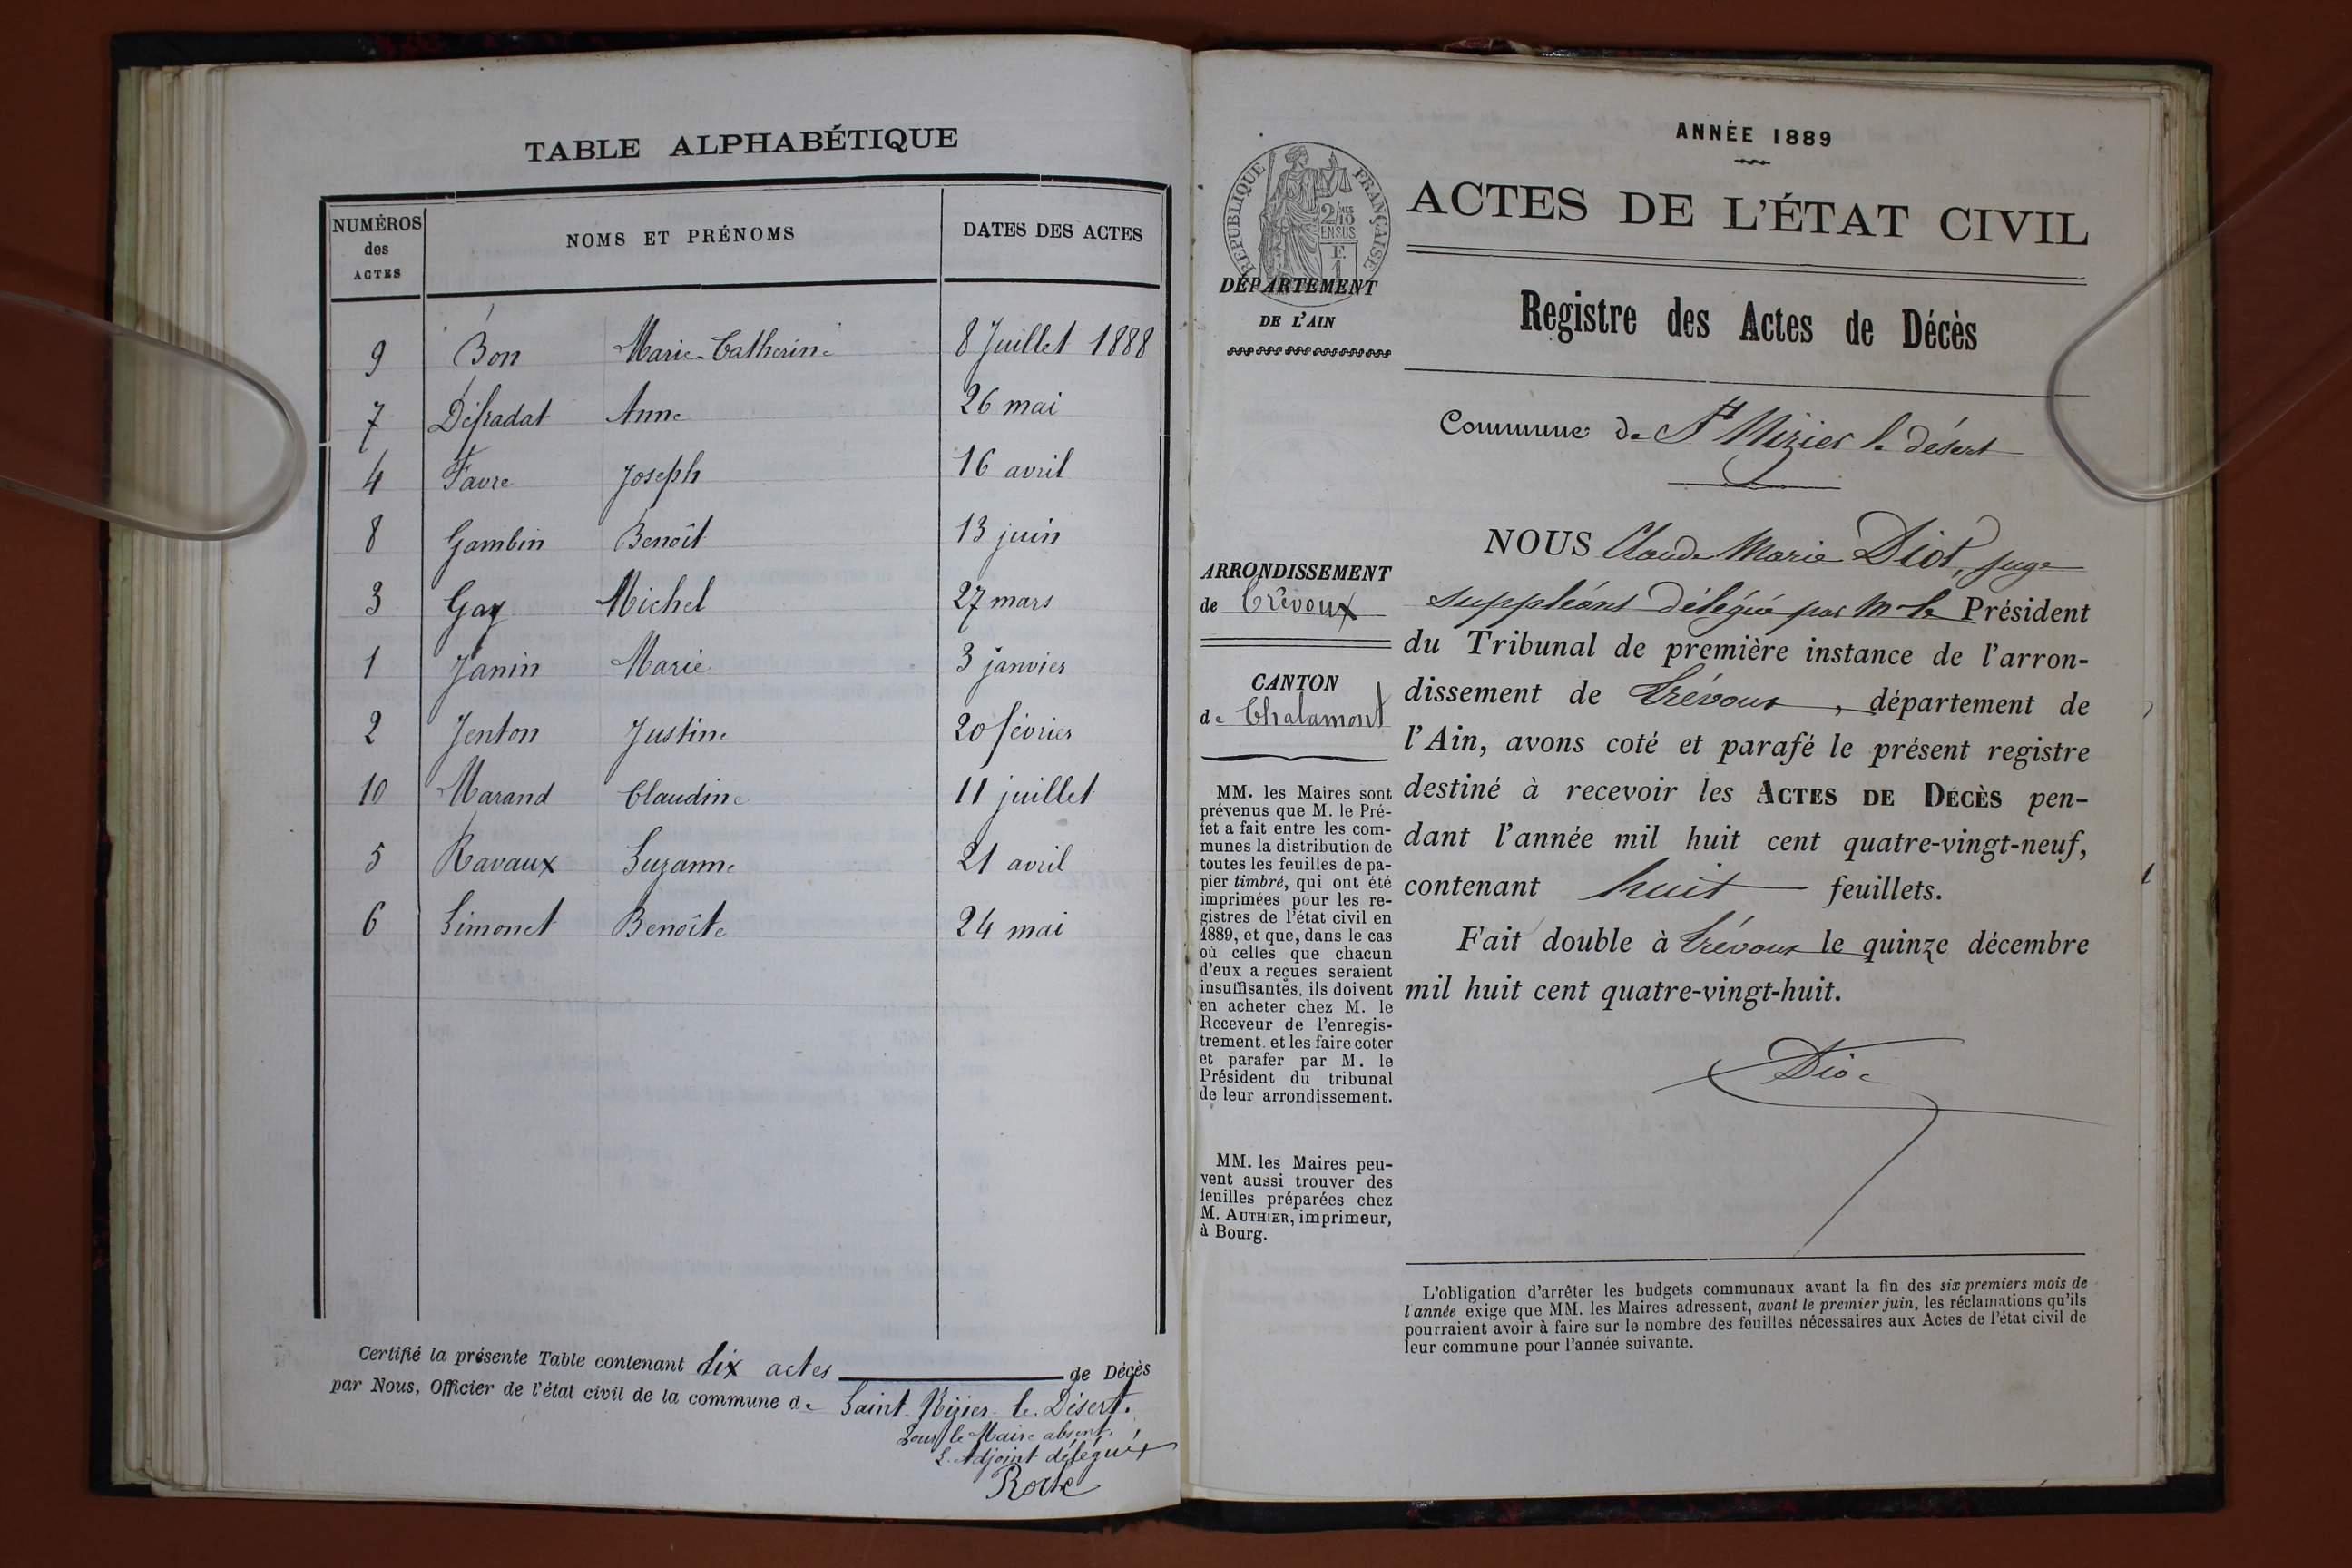 TABLE ALPHABÉTIQUE
NUMÉROS des ACTES NOMS ET PRÉNOMS DATES DES ACTES
9 Bon Marie-Catherine 8 Juillet 1888
7 Anne 26 mai
4 Favre Joseph 16 avril
8 Gambin Benoît 13 juin
3 Gay Michel 27 mars
1 Janin Marie 3 janvier
2 Jenton Justine 20 février
10 Marand Claudine 11 juillet
5 Ravaux Suzanne 21 avril
6 Simonet Benoîte 24 mai
Certifié la présente Table contenant dix actes de Décès
par Nous, Officier de l'état civil de la commune de Saint-Nizier-le-Désert.
Pour le Maire absent,
L'Adjoint délégué
Roche
RÉPUBLIQUE FRANÇAISE
2/10 EN SUS
DÉPARTEMENT
DE L'AIN
ARRONDISSEMENT
de Trévoux
CANTON
de Chalamont
MM. les Maires sont
prévenus que M. le Pré-
fet a fait entre les com-
munes la distribution de
toutes les feuilles de pa-
pier timbré, qui ont été
imprimées pour les re-
gistres de l'état civil en
1889, et que, dans le cas
où celles que chacun
d'eux a reçues seraient
insuffisantes, ils doivent
en acheter chez M. le
Receveur de l'enregis-
trement. et les faire coter
et parafer par M. le
Président du tribunal
de leur arrondissement.
MM. les Maires peu-
vent aussi trouver des
feuilles préparées chez
M. AUTHIER, imprimeur,
à Bourg.
ANNÉE 1889
ACTES DE L'ÉTAT CIVIL
Registre des Actes de Décès
Commune de St Nizier le désert
NOUS Claude Marie Diot, juge
suppléant délégué par Mr le Président
du Tribunal de première instance de l'arron-
dissement de Trévoux, département de
l'Ain, avons coté et parafé le présent registre
destiné à recevoir les ACTES DE DÉCÈS pen-
dant l'année mil huit cent quatre-vingt-neuf,
contenant huit feuillets.
Fait double à Trévoux le quinze décembre
mil huit cent quatre-vingt-huit.
L'obligation d'arrêter les budgets communaux avant la fin des six premiers mois de
l'année exige que MM. les Maires adressent, avant le premier juin, les réclamations qu'ils
pourraient avoir à faire sur le nombre des feuilles nécessaires aux Actes de l'état civil de
leur commune pour l'année suivante.